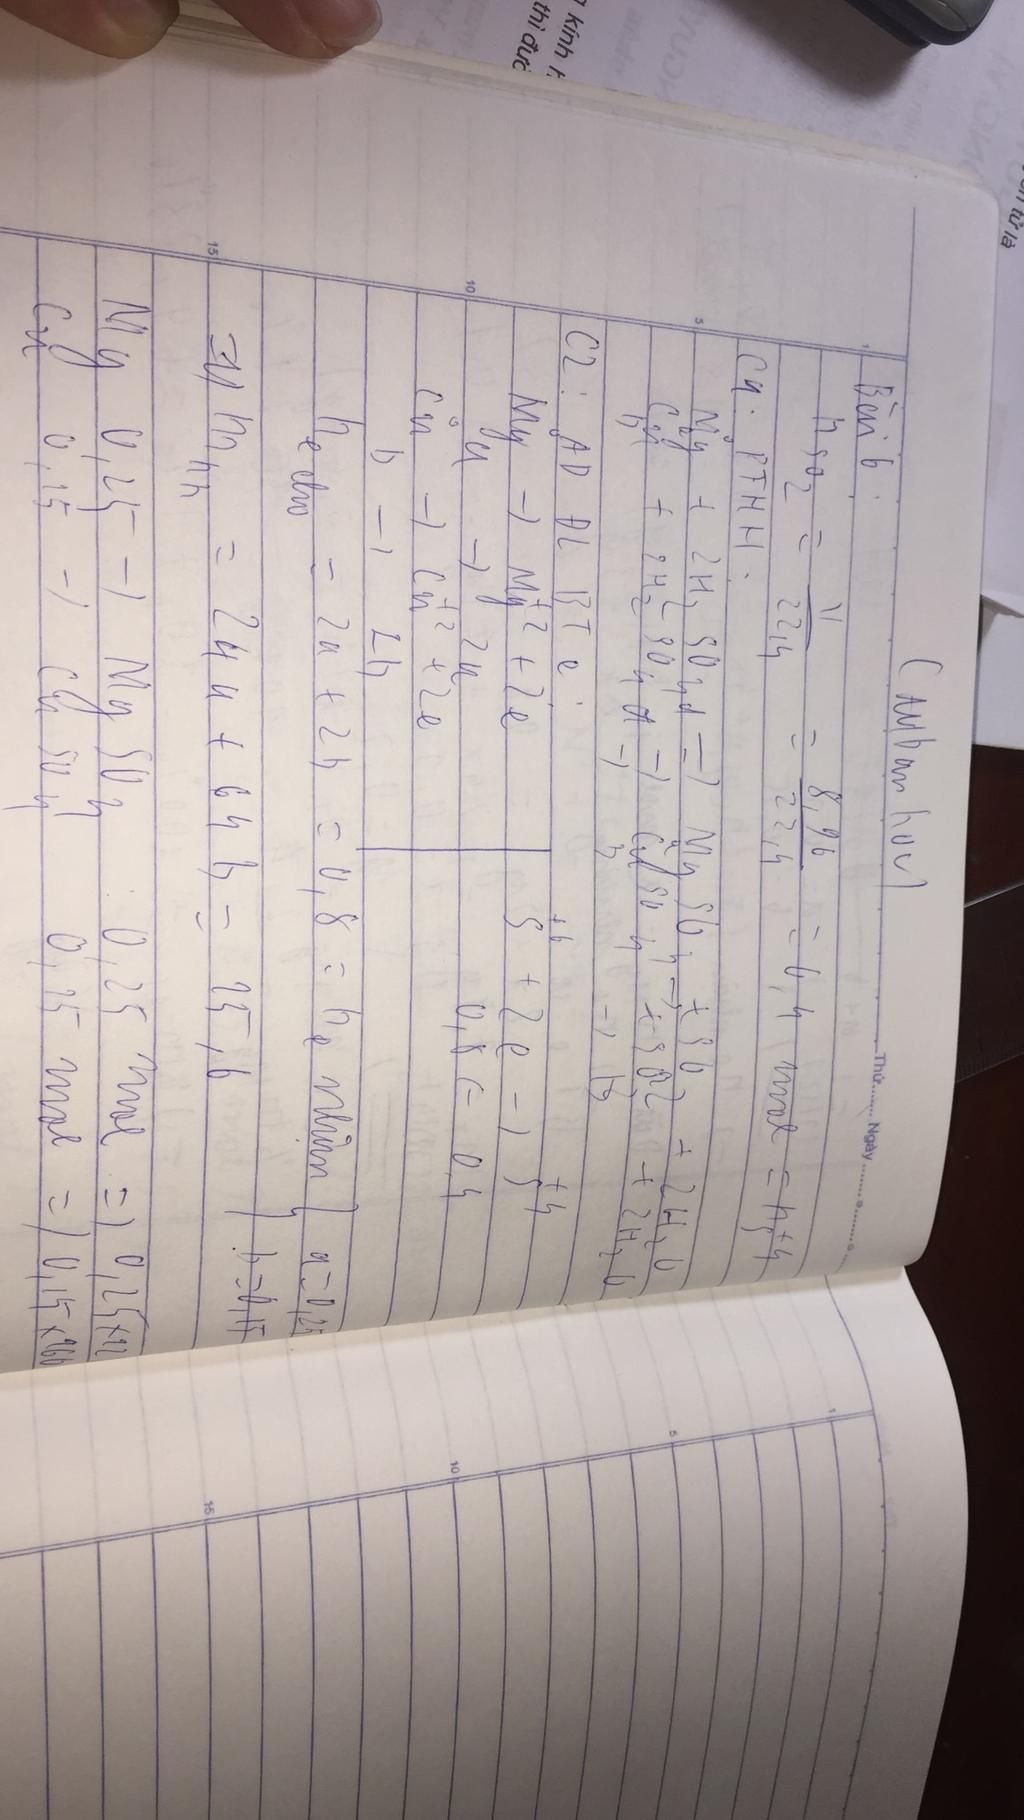 Thứ........ Ngày
Bài 6.
n SO2 = V/22,4 = 8,96/22,4 = 0,4 mol = n S+4
C1. PTHH.
Mg + 2H2SO4đ → MgSO4 + SO2 + 2H2O
Cu + 2H2SO4đ → CuSO4 + SO2 + 2H2O
b → b → b
C2: AD ĐL BT e:
Mg → Mg+2 + 2e
S+6 + 2e → S+4
a → 2a
0,8 ← 0,4
Cu0 → Cu+2 + 2e
b → 2b
ne cho = 2a + 2b = 0,8 = ne nhận
a = 0,25
m hh = 24a + 64b = 25,6
b = 0,15
Mg 0,25 → MgSO4 : 0,25 mol =) 0,25 x 12
Cu 0,15 → CuSO4 0,15 mol =) 0,15 x 160
1
5
10
15
kính
thi đượ
tử là
1
5
10
15